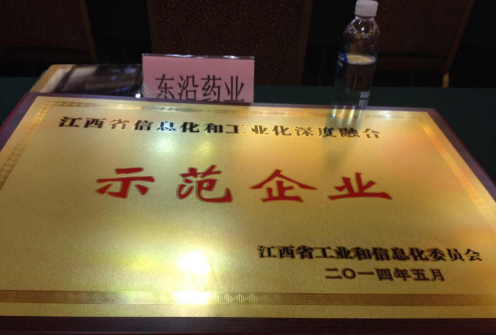 东沿药业
江西省信息化和工业化深度融合
示范企业
江西省工业和信息化委员会
二〇一四年五月